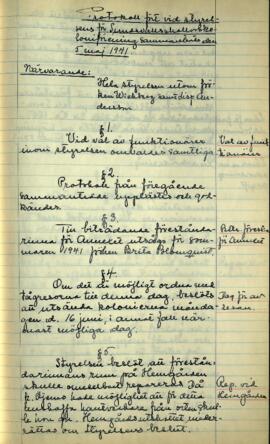 Protokoll fört vid styrel-
sens för Sundsvalls skollovsko-
loniförening sammanträde den
5 maj 1941
Närvarande:
Hela styrelsen utom frö-
ken Wickberg samt disp. An-
dersson.
§ 1.
Vid val av funktionärer
inom styrelsen omvaldes samtliga.
Val av funk-
tionärer
§ 2.
Protokoll från föregående
sammanträde upplästes och god-
kändes.
§ 3.
Till biträdande förestånda-
rinna för Annexet utsågs för som-
maren 1941 fröken Greta Blomquist.
för Annexet
§ 4.
Om det är möjligt ordna med
tågresorna till denna dag, beslöts
att utsända kolonierna månda-
gen d. 16 juni, i annat fall när-
mast möjliga dag.
Dag för av-
resan.
§ 5.
Styrelsen beslöt att förestån-
darinnans rum på Hemgården
skulle omedelbart repareras. Då
hade möjlighet att för detta
ändamål
Hemgårdens
rättas om styrelsens beslut.
Rep. vid
Hemgården